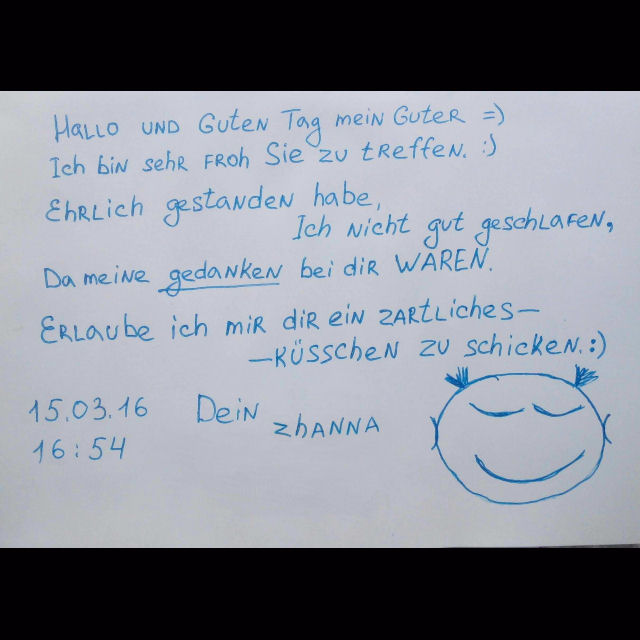 Hallo und Guten Tag mein Guter =)
Ich bin sehr froh Sie zu treffen. :)
Ehrlich gestanden habe,
Ich nicht gut geschlafen,
Da meine gedanken bei dir WAREN.
Erlaube ich mir dir ein zartliches—
—Küsschen zu schicken. :)
15.03.16 Dein zhanna
16:54